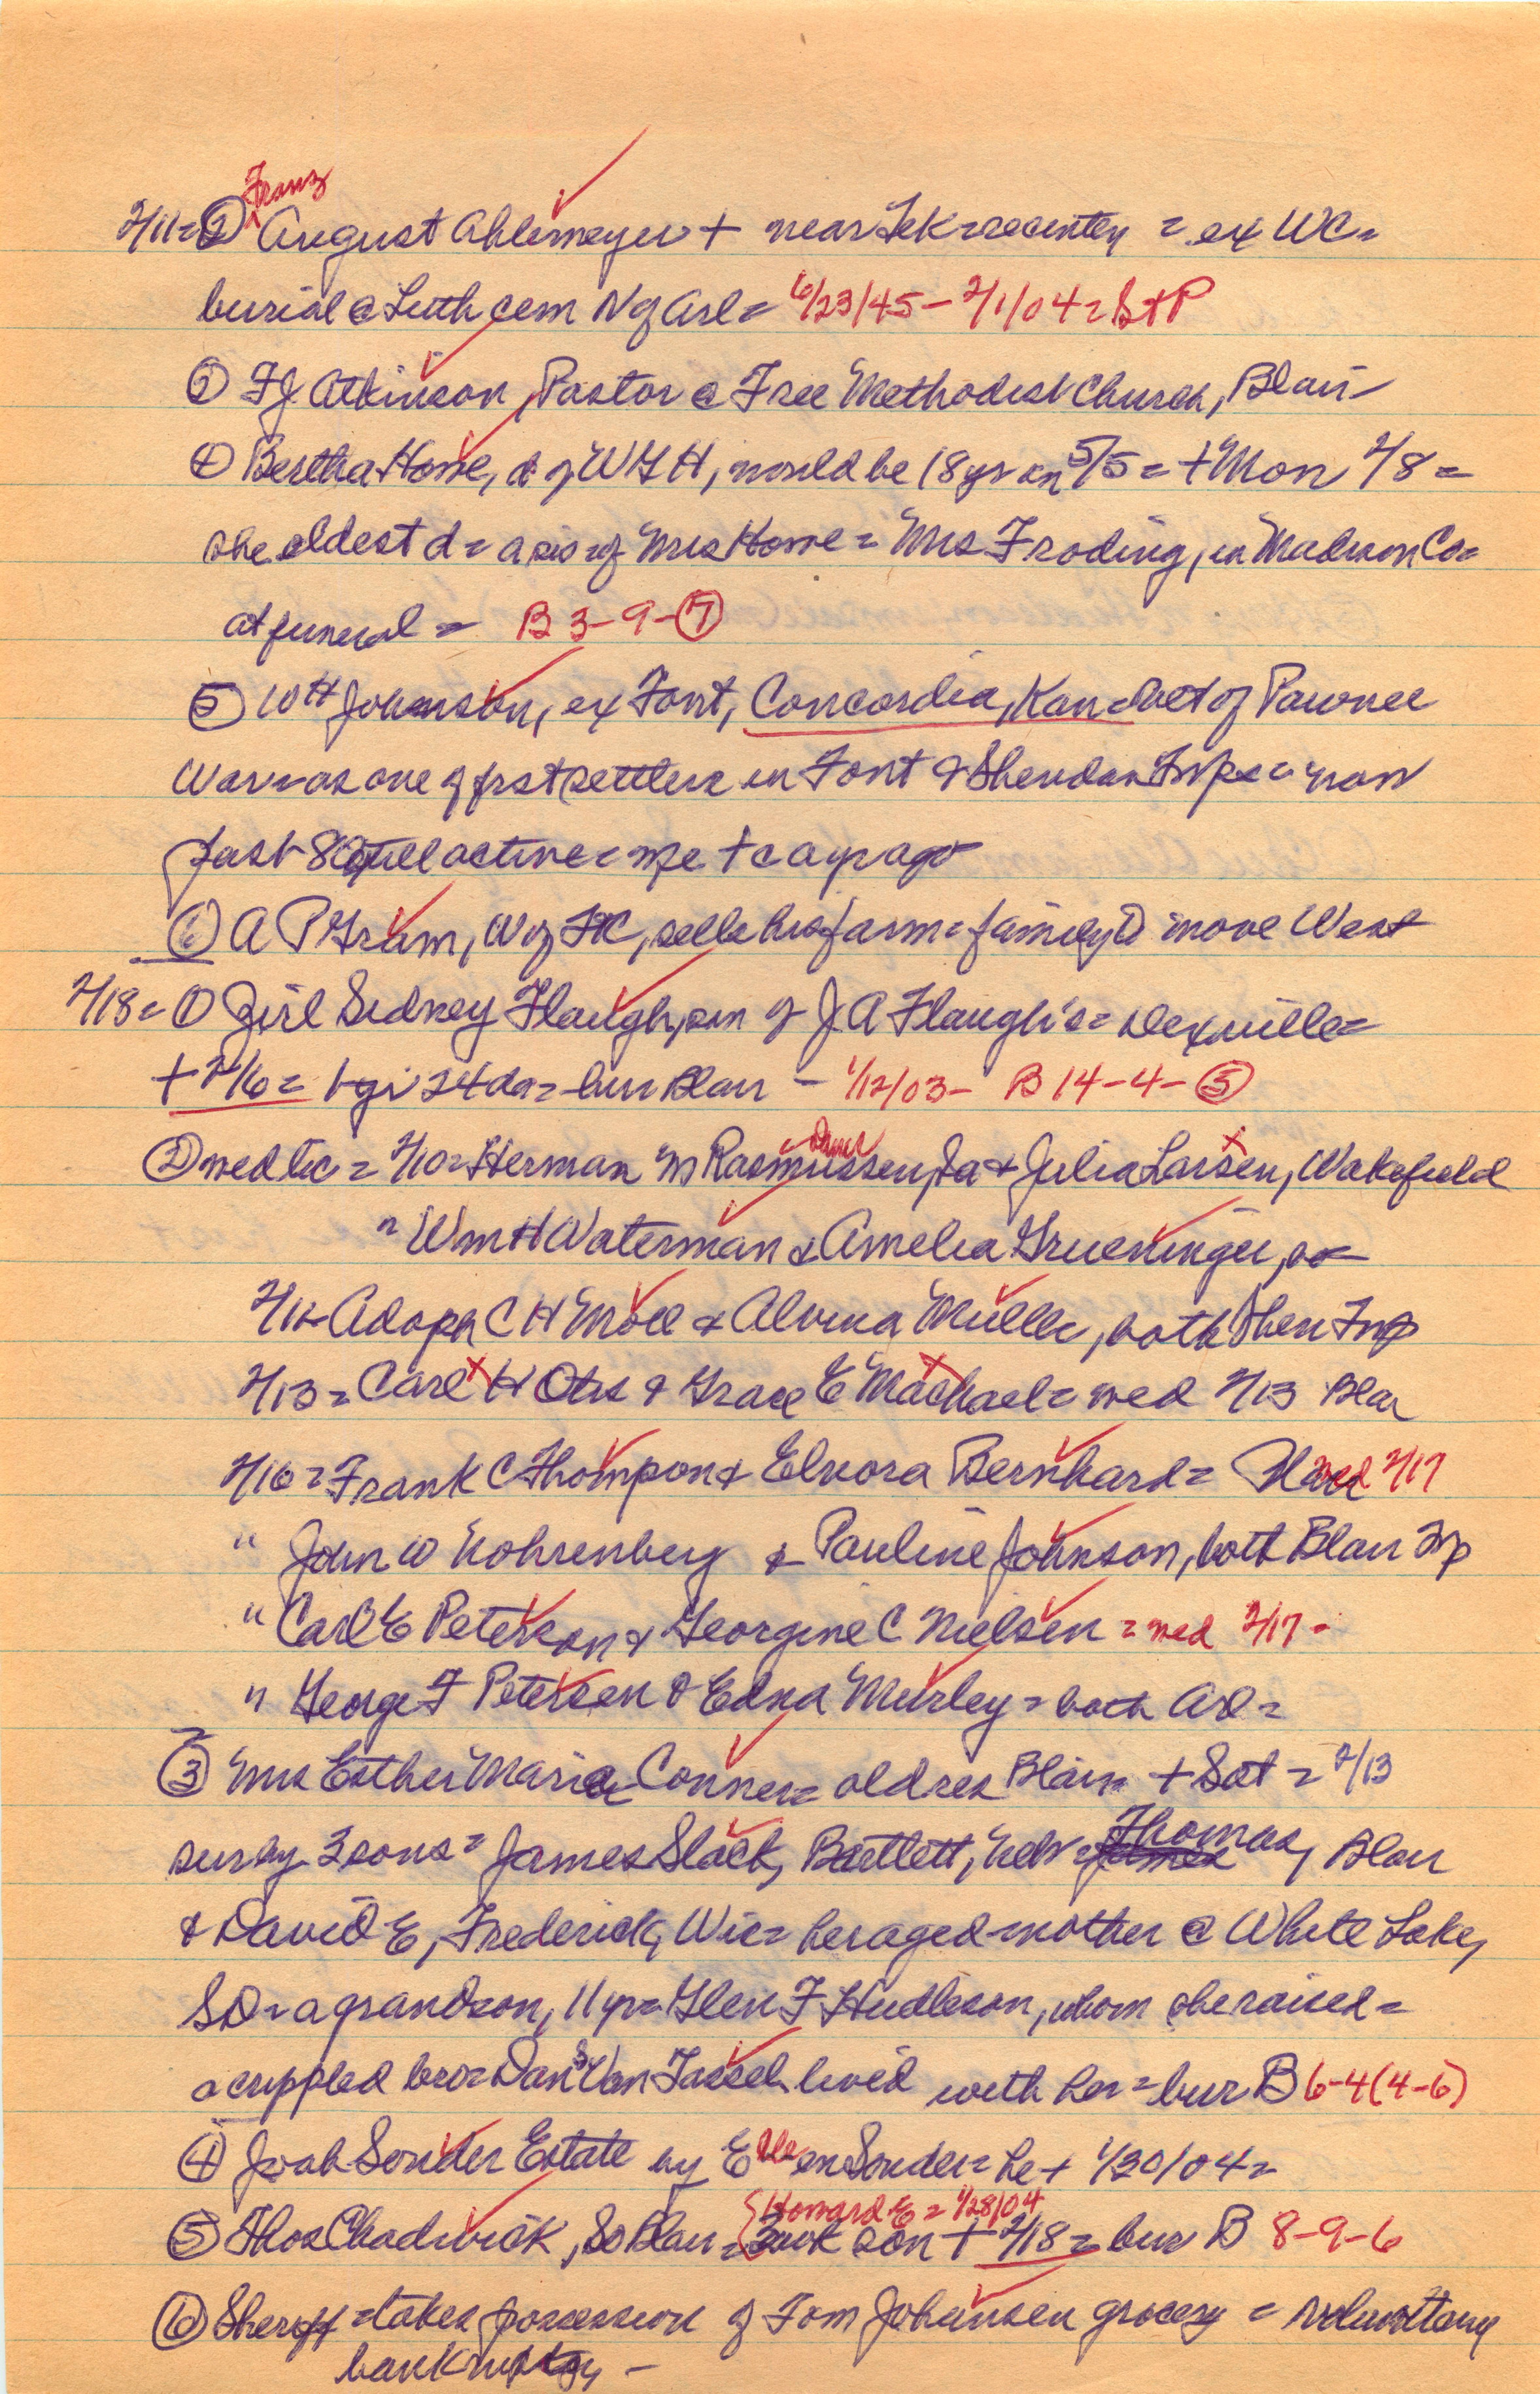 Franz
2/11 = ② August Ahlemeyer + near Tek = recently = ex WC =
burial @ Luth cem N of Arl = 6/23/45 - 2/1/04 = S+P
③ F J Atkinson, Pastor @ Free Methodist Church, Blair
④ Bertha Horne, d of W G H, would be 18 yrs on 5/5 = + Mon 2/8 =
she eldest d = a sis of Mrs Horne = Mrs Froding, in Madison Co =
at funeral = B 3-9-⑦
⑤ W H Johnson, ex Font, Concordia, Kan = vet of Pawnee
War = as one of first settlers in Font & Sheridan Twps = now
past 80 still active = wife + a yr ago
⑥ A P Gram, W of , sells his farm = family to move West
2/18 = ① Girl Sidney Flaugh, son of J A Flaugh's = Dexville =
+ 2/6 = 1 yr 24 da = bur Blair - 1/12/03 - B 14-4-⑤
② wed lic = 2/10 = Herman M Rasmussen, Ia & Julia Larsen, Wakefield
" Wm H Waterman & Amelia Grueninger,
2/12 Adolph C H Moll & Alvina Muller, both Sher Twp
2/13 = Carl H Otis & Grace E Machael = wed 2/13 Blair
2/16 = Frank C Thompson & Elnora Bernhard = wed 2/17
" John W Rohrenberg & Pauline Johnson, both Blair Twp
" Carl E Peterson & Georgine C Nielsen = wed 2/17 -
" George F Petersen & Edna Murley = both Arl =
③ Mrs Esther Maria Conner = old res Blair + Sat = 2/13
sur by 3 sons = James Slack, Bartlett, Neb = Thomas, Blair
& David E, Frederick, Wis = her aged mother @ White Lake,
SD = a grandson, 11 yr = Glen F Hudleson, whom she raised =
a crippled bro = Dan S Van Tassel lived with her = bur B 6-4 (4-6)
④ Joab Souder Estate by Ellen Souder = he + 1/30/04 =
Howard E = 1/28/04
⑤ Thos Chadwick, So Blair = 3 wk son + 2/18 = bur B 8-9-6
⑥ Sheriff = takes possession of Tom Johansen grocery = voluntary
bankruptcy -